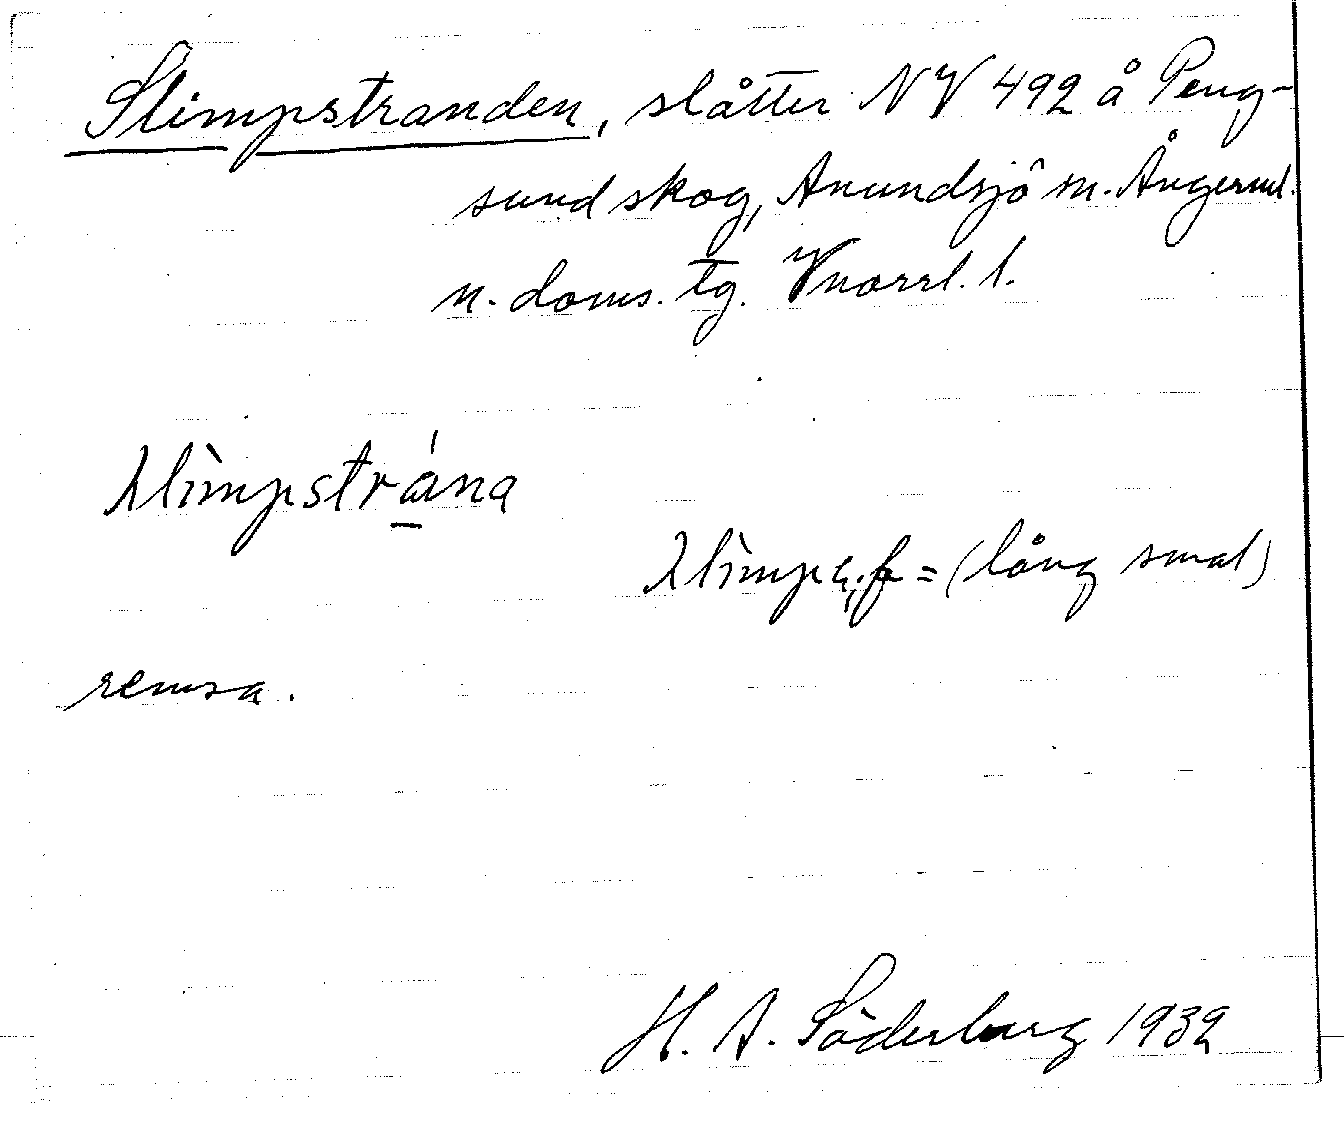 Slimpstranden, slåtter NV 492 å Peng-
sund skog, Anundsjö sn. Ångerml.
n. doms. tg. Vnorrl. l.
λlìmpstrána
λlìmpa, f = (lång smal)
remsa.
H. A. Söderberg 1932